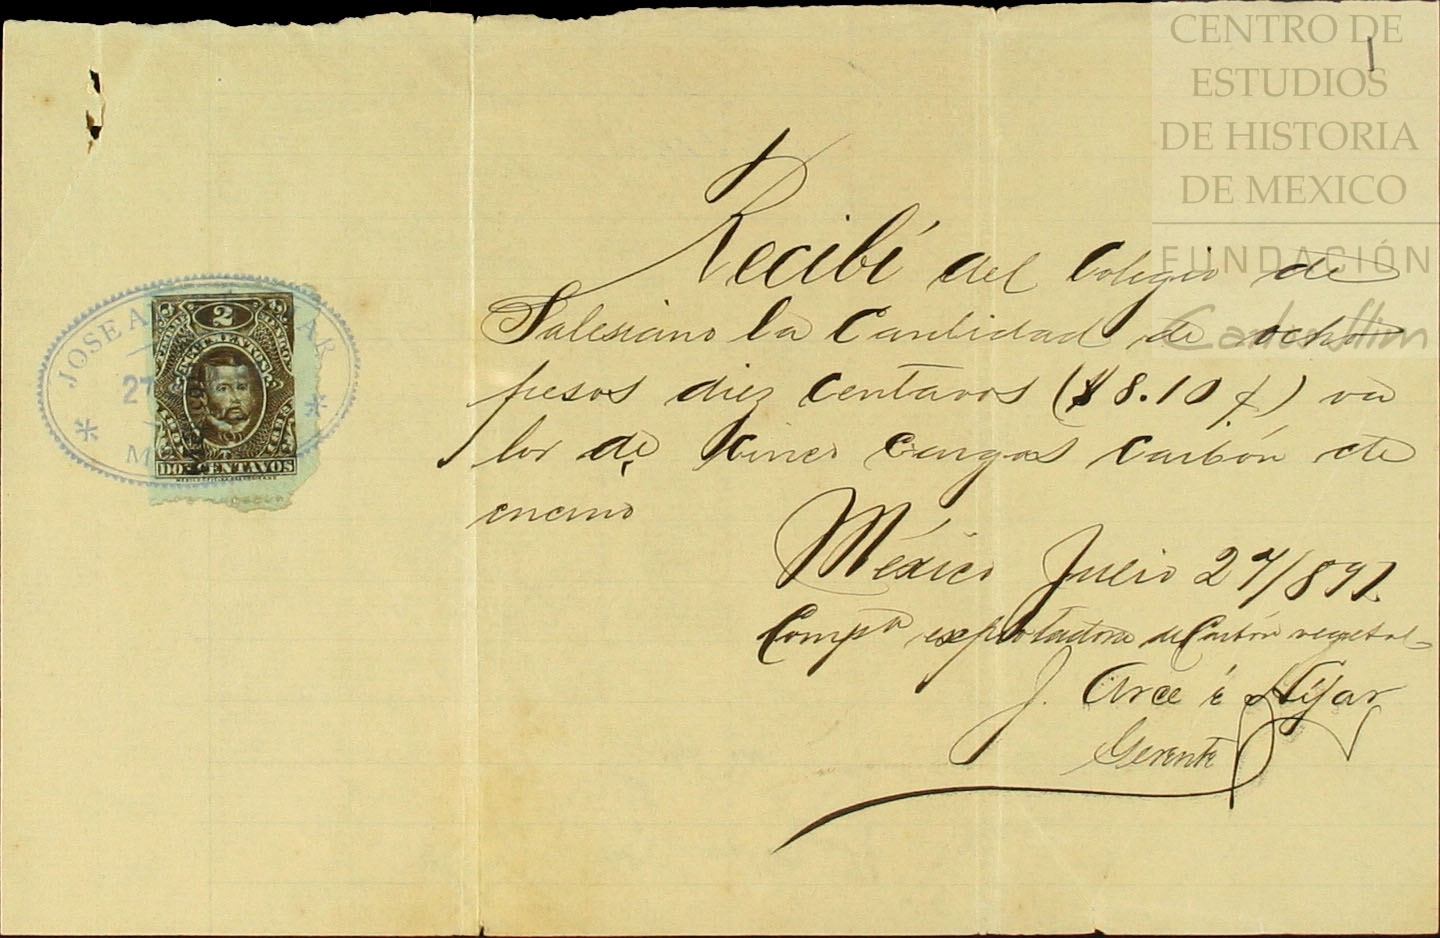 CENTRO DE
ESTUDIOS
DE HISTORIA
DE MEXICO
FUNDACIÓN
Carlos Slim
1
Recibí del Colegio de
Salesiano la Cantidad de ocho
pesos diez centavos ($8.10 ¢) va
lor de cinco cargas carbón de
encino
México Julio 27/897.
Compª explotadora de Carbón vegetal
J. Arce é Híjar
Gerente
JOSE A AR
27
M
2
DOS CENTAVOS